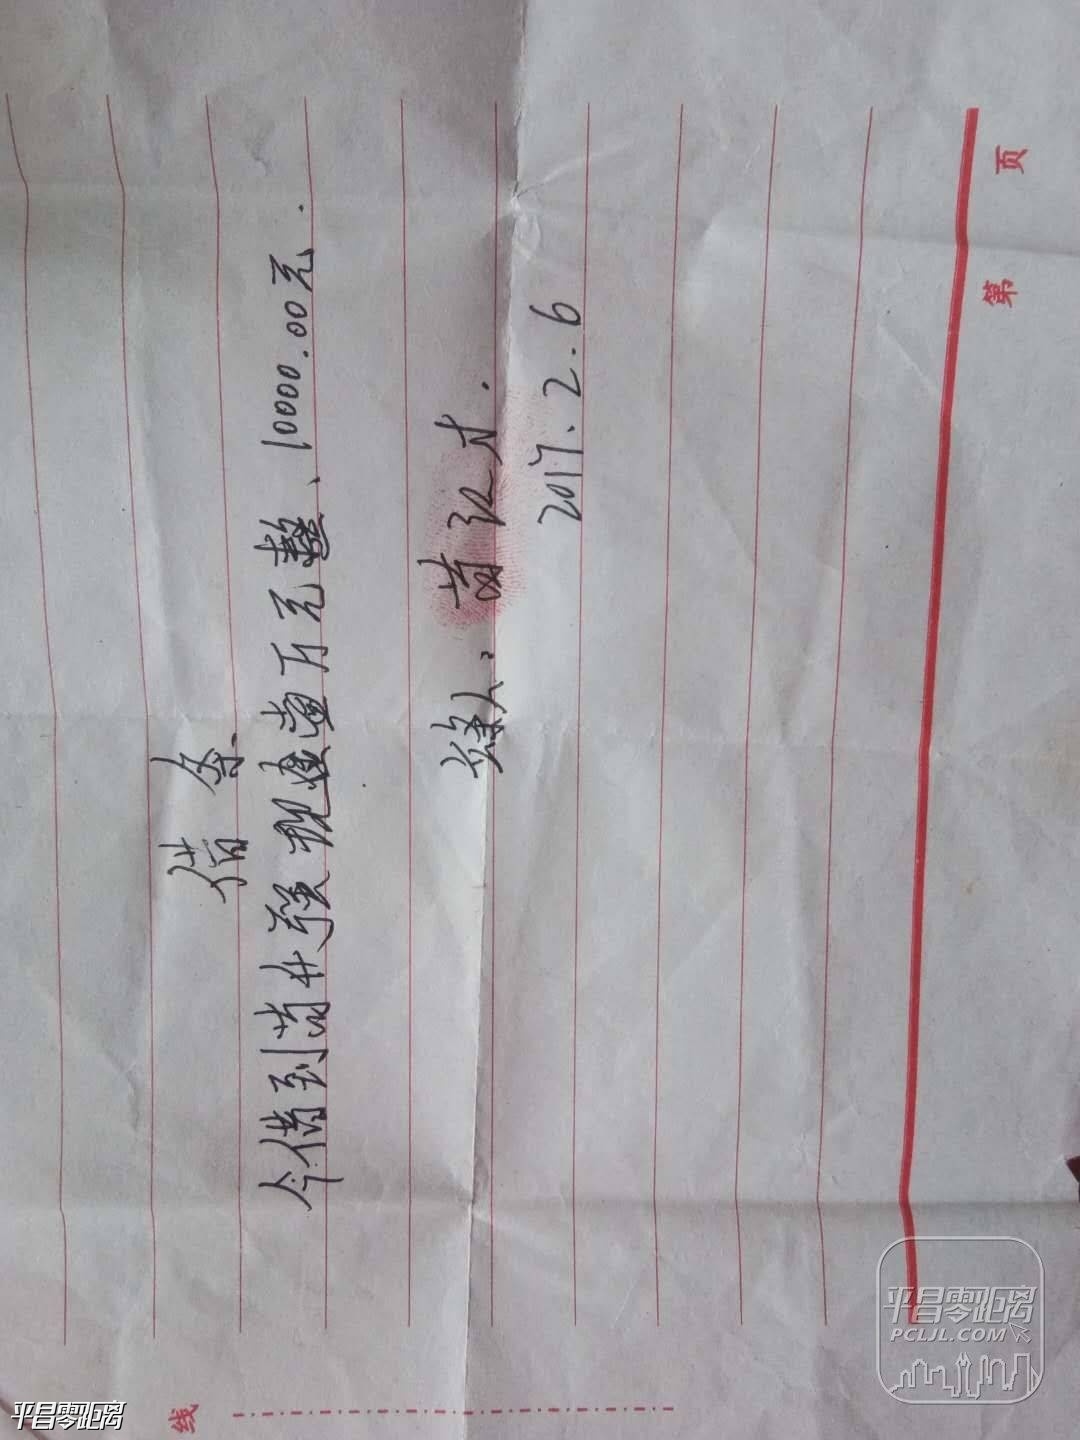 借条.
今借到苟在琼现金壹万元整、10000.00元.
借人: 苟弘才.
2017.2.6
第 页
线
平昌零距离
PCLJL.COM
平昌零距离